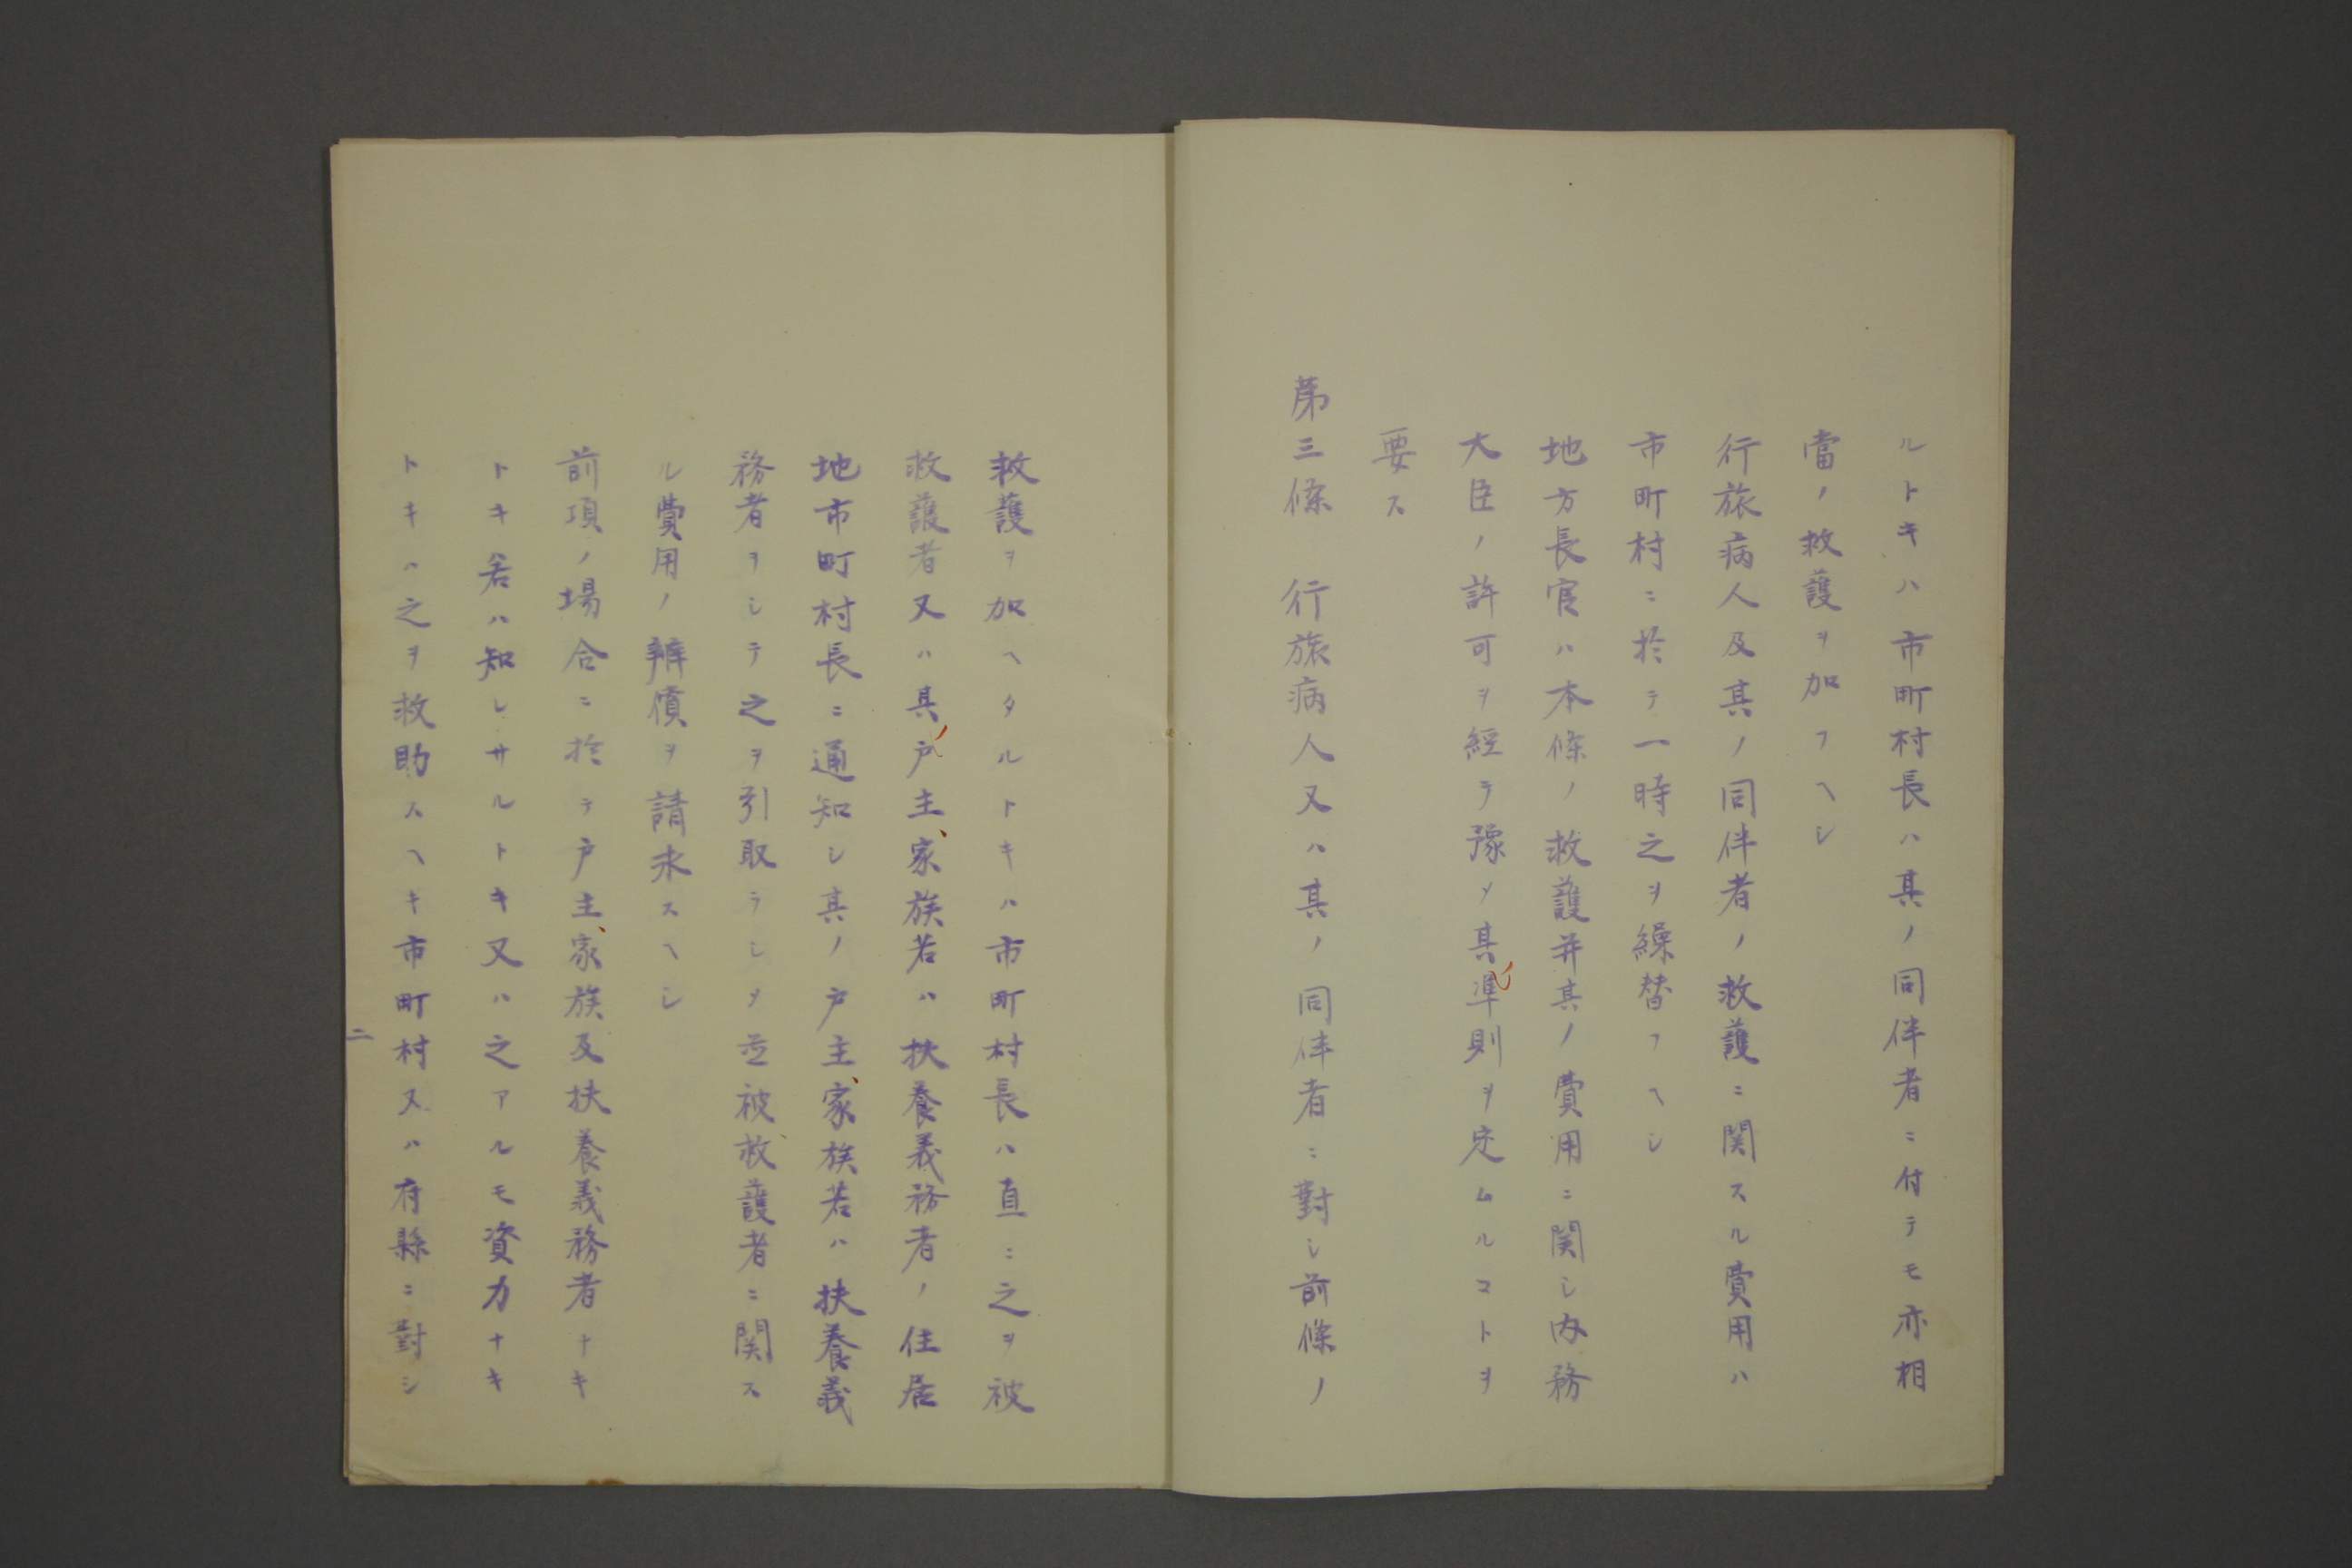 ルトキハ市町村長ハ其ノ同伴者ニ付テモ亦相
當ノ救護ヲ加フヘシ
行旅病人及其ノ同伴者ノ救護ニ関スル費用ハ
市町村ニ於テ一時之ヲ繰替フヘシ
地方長官ハ本條ノ救護并其ノ費用ニ関シ内務
大臣ノ許可ヲ経テ豫メ其準則ヲ定ムルコトヲ
要ス
第三條 行旅病人又ハ其ノ同伴者ニ對シ前條ノ
救護ヲ加ヘタルトキハ市町村長ハ直ニ之ヲ被
救護者又ハ其ノ戸主、家族若ハ扶養義務者ノ住居
地市町村長ニ通知シ其ノ戸主、家族若ハ扶養義
務者ヲシテ之ヲ引取ラシメ並被救護者ニ関ス
ル費用ノ辨償ヲ請求スヘシ
前項ノ場合ニ於テ戸主、家族及扶養義務者ナキ
トキ若ハ知レサルトキ又ハ之アルモ資力ナキ
トキハ之ヲ救助スヘキ市町村又ハ府縣ニ對シ
二